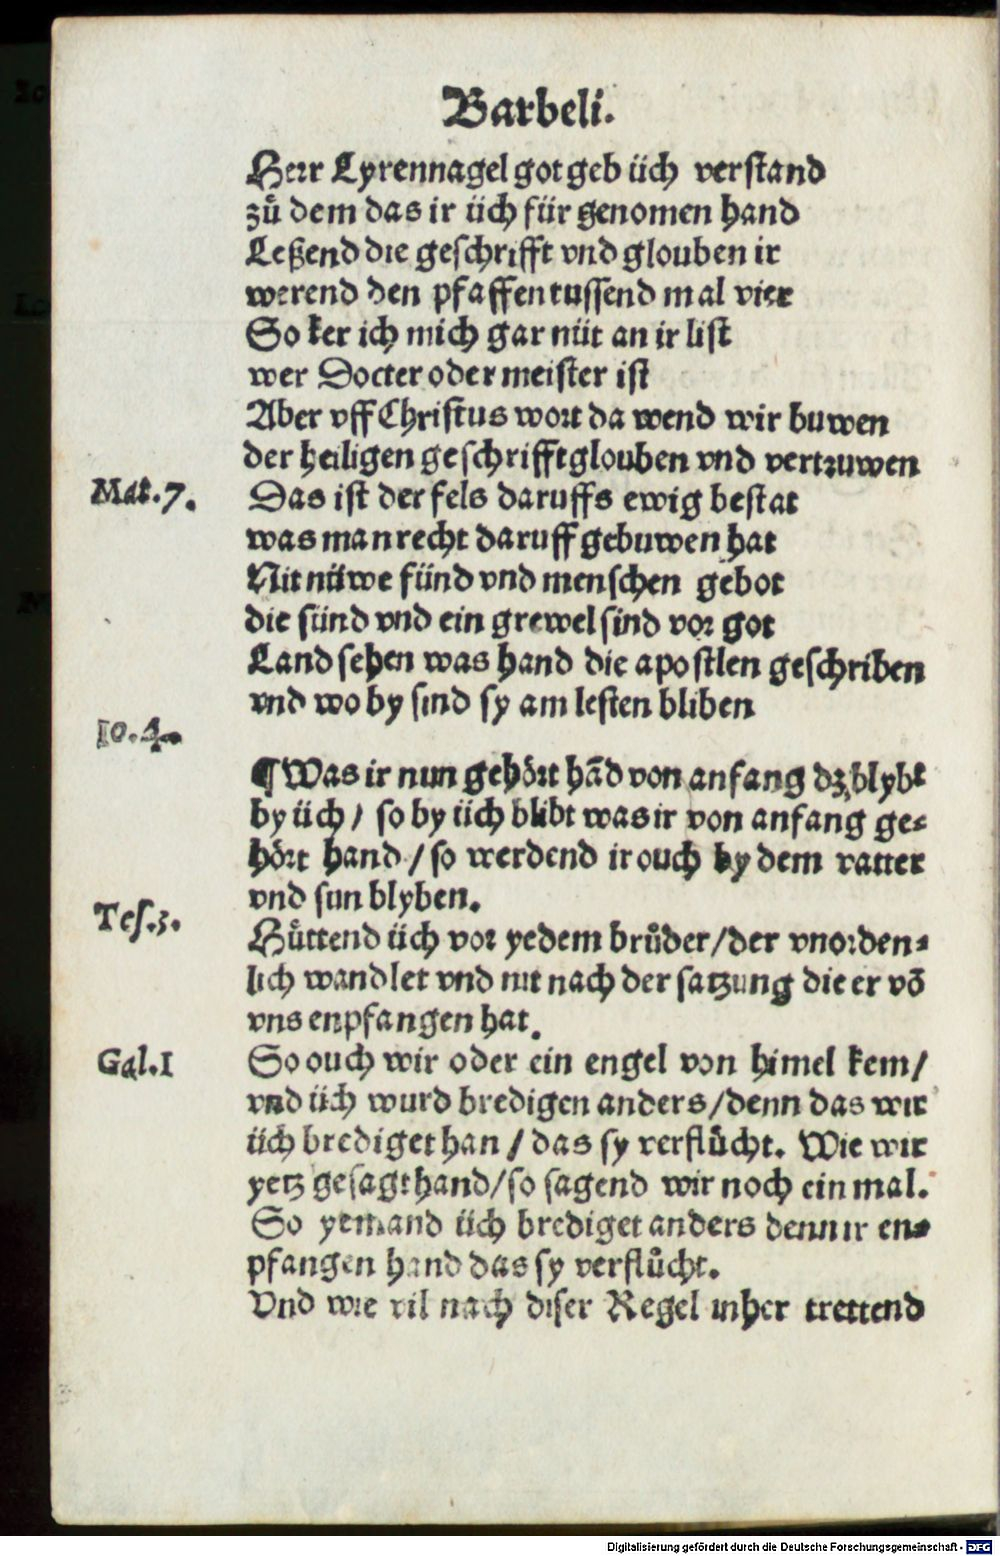 Barbeli.
Herr Lyrennagel got geb üch verstand
zuͦ dem das ir üch für genomen hand
Leßend die geschrifft vnd glouben ir
werend den pfaffen tussend mal vier
So ker ich mich gar nüt an ir list
wer Docter oder meister ist
Aber vff Christus wort da wend wir buwen
der heiligen geschrifft glouben vnd vertruwen
Mat. 7. Das ist der fels daruffs ewig bestat
was man recht daruff gebuwen hat
Nit nüwe fünd vnd menschen gebot
die sünd vnd ein grewel sind vor got
Land sehen was hand die apostlen geschriben
vnd wo by sind sy am lesten bliben
Io. 4.
¶ Was ir nun gehört hãd von anfang dz blybt
by üch / so by üch blibt was ir von anfang ge⸗
hört hand / so werdend ir ouch by dem vatter
vnd sun blyben.
Tes. 3. Huͤttend üch vor yedem bruͦder / der vnorden⸗
lich wandlet vnd nit nach der satzung die er võ
vns enpfangen hat.
Gal. I So ouch wir oder ein engel von himel kem /
vnd üch wurd bredigen anders / denn das wir
üch brediget han / das sy verfluͦcht. Wie wir
yetz gesagt hand / so sagend wir noch ein mal.
So yemand üch brediget anders denn ir en⸗
pfangen hand das sy verfluͦcht.
Vnd wie vil nach diser Regel inher trettend
Digitalisierung gefördert durch die Deutsche Forschungsgemeinschaft - DFG